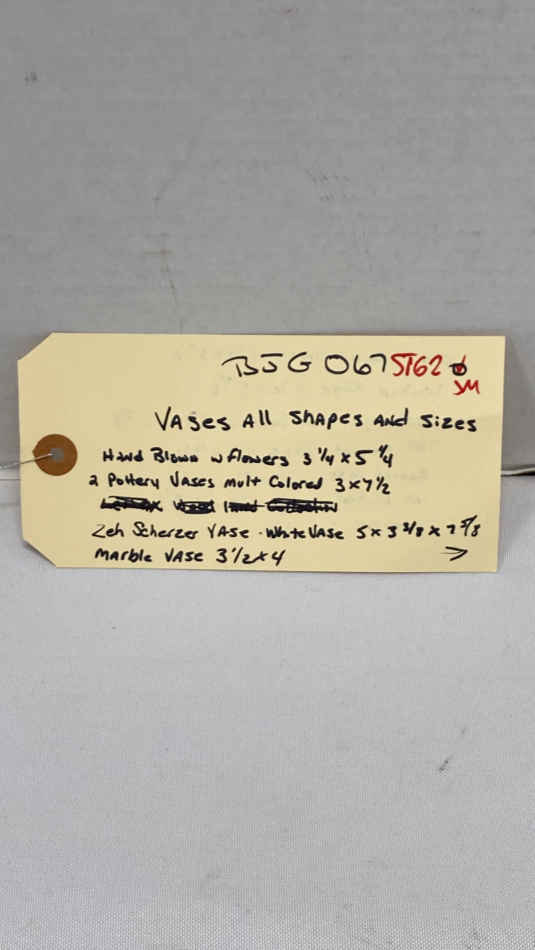 BJG 067 ST62
JM
Vases All Shapes And Sizes
Hand Blown w Flowers 3 1/4 x 5 1/4
2 Pottery Vases Mult Colored 3 x 7 1/2
Zeh Scherzer Vase - White Vase 5 x 3 3/8 x 7 5/8
Marble Vase 3 1/2 x 4